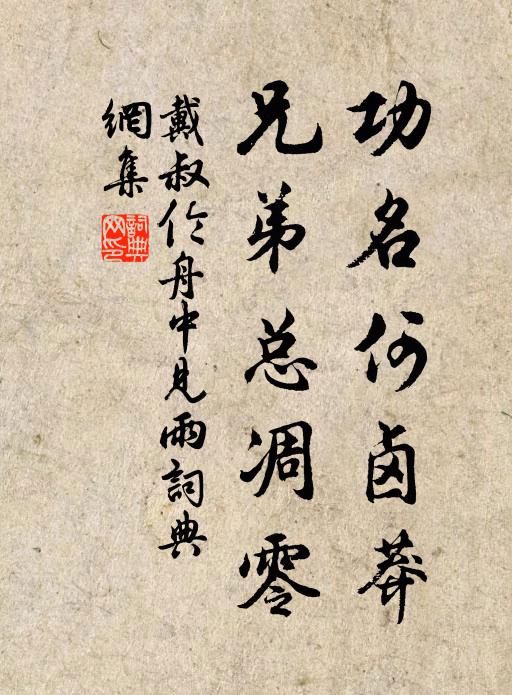 功名何卤莽
兄弟总凋零
戴叔伦舟中見雨詞典
網集
詞典
网印